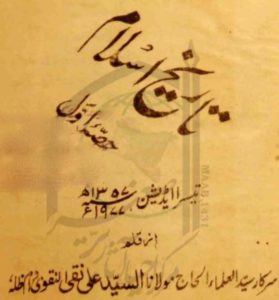 تاریخ اسلام
حصہ اوّل
تیسرا ایڈیشن
۱۳۵۷ھ
۱۹۷۷ء
از قلم
سرکار سیّد العلماء الحاج مولانا السیّد علی نقی النقوی دام ظلہٗ
MAAB 1431